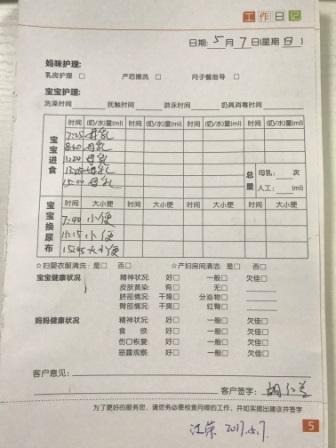 工作日记
日期: 5 月 7 日(星期 日 )
妈咪护理:
乳房护理 □ 产后擦洗 □ 月子餐指导 □
宝宝护理:
洗澡时间 抚触时间 游泳时间 奶具消毒时间
宝宝进食 时间 (奶/水)量(ml) 时间 (奶/水)量(ml) 时间 (奶/水)量(ml) 时间 (奶/水)量(ml)
7:25 母乳
8:40 母乳
11:20 母乳
母乳
15:00 母乳
总量 母乳: 次
人工: (ml)
宝宝换尿布 时间 大小便 时间 大小便 时间 大小便 时间 大小便
7:40 小便
11:15 小便
15:45 大小便
☆妇婴衣服清洗: 是□ 否□ ☆产妇房间清洁: 是□ 否□
宝宝健康状况 精神状况: 好□ 一般□ 欠佳□
皮肤黄染: 有□ 无□
脐部情况: 干燥□ 分泌物□
臀部情况: 干爽□ 红臀□
妈妈健康状况 精神状况: 好□ 一般□ 欠佳□
食 欲: 好□ 一般□ 欠佳□
伤口恢复: 好□ 一般□ 欠佳□
恶露观察: 好□ 一般□ 欠佳□
客户意见:
客户签字:
为了更好的服务您,请您务必要检查月嫂的工作,并如实提出建议并签字
5
2017.5.7.